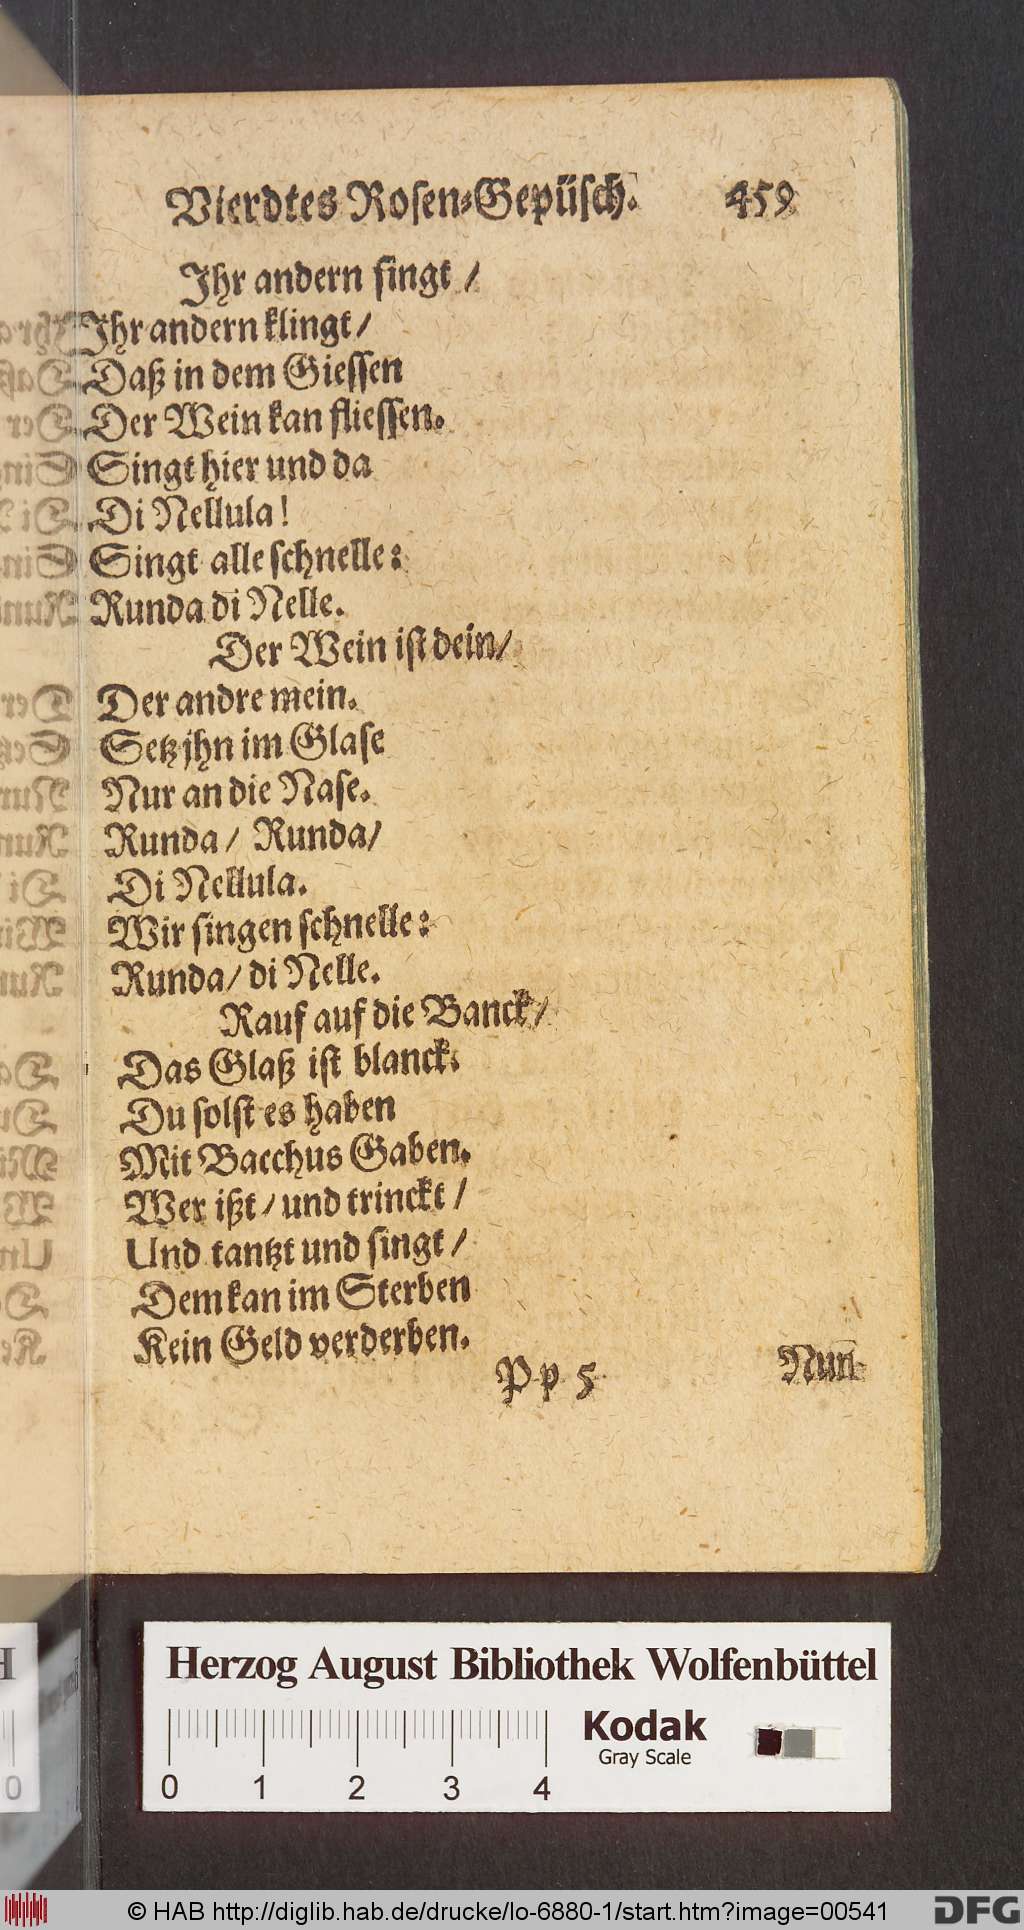 Vierdtes Rosen-Gepüsch. 459
Ihr andern singt /
Ihr andern klingt/
Daß in dem Giessen
Der Wein kan fliessen.
Singt hier und da
Di Nellula!
Singt alle schnelle:
Runda di Nelle.
Der Wein ist dein/
Der andre mein.
Setz jhn im Glase
Nur an die Nase.
Runda/ Runda/
Di Nellula.
Wir singen schnelle:
Runda/ di Nelle.
Rauf auf die Banck/
Das Glaß ist blanck:
Du solst es haben
Mit Bacchus Gaben.
Wer ißt/ und trinckt/
Und tantzt und singt/
Dem kan im Sterben
Kein Geld verderben.
Pp 5 Nun
Herzog August Bibliothek Wolfenbüttel
Kodak
Gray Scale
0 1 2 3 4
0
© HAB http://diglib.hab.de/drucke/lo-6880-1/start.htm?image=00541
DFG